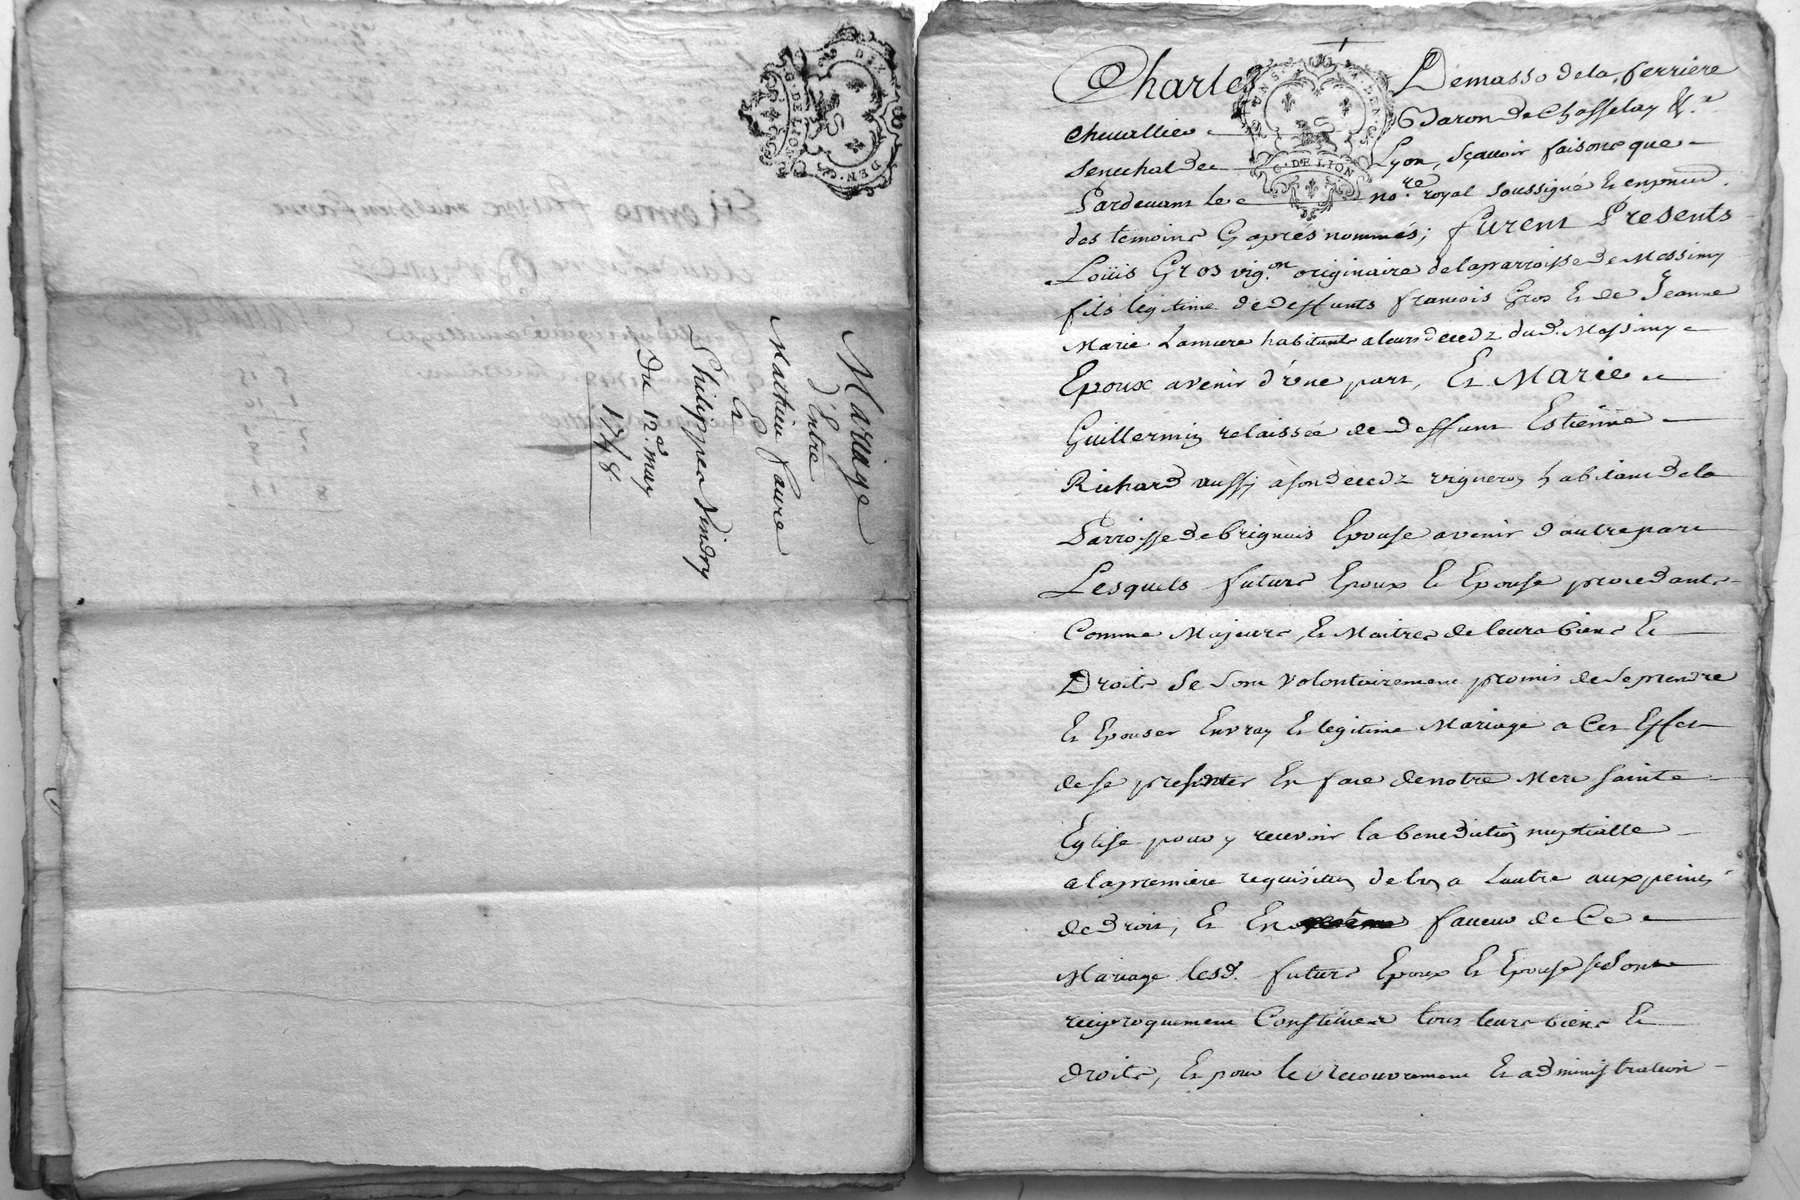 DIX DEN.
G. DE LION
Mariage
d'Entre
Mathieu faure
Et
Philippea Vindry
Du 12e. may
1748.
Charles Demasso dela ferriere
Chevallier Baron de Chasselay &.a
Senechal de Lyon, sçavoir faisons que
Pardevant le no.re royal soussigné Et en pnce.
des temoins Cy aprés nommés; furent Presents
Loüis Gros vig.on originaire delaparroisse de Messimy
fils legitime de deffunts francois Gros Et de Jeanne
Marie Lamure habitants a leurs decedz dud. Messimy
Epoux avenir d'vne part, Et Marie
Guillermin relaissée de deffunt Estienne
Richard aussy à son decedz vigneron habitant de la
Parroisse de brignais Epouse avenir d'autre part
Lesquels futurs Epoux Et Epouse procedants
Comme Majeurs, Et Maitres de leurs biens Et
Droits Se Sont Volontairement promis de Se prendre
Et Epouser En vray Et legitime Mariage a Cet Effet
de se presenter En face de notre Mere Sainte
Eglise pour y recevoir la benediction nuptialle
a la premiere requisition de lun a Lautre aux peines
de Droit, Et En faveur de Ce
Mariage lesd. futurs Epoux Et Epouse se Sont
reciproquement Constitués tous leurs biens Et
droits, Et pour le recouvrement Et administration
G. DE LION